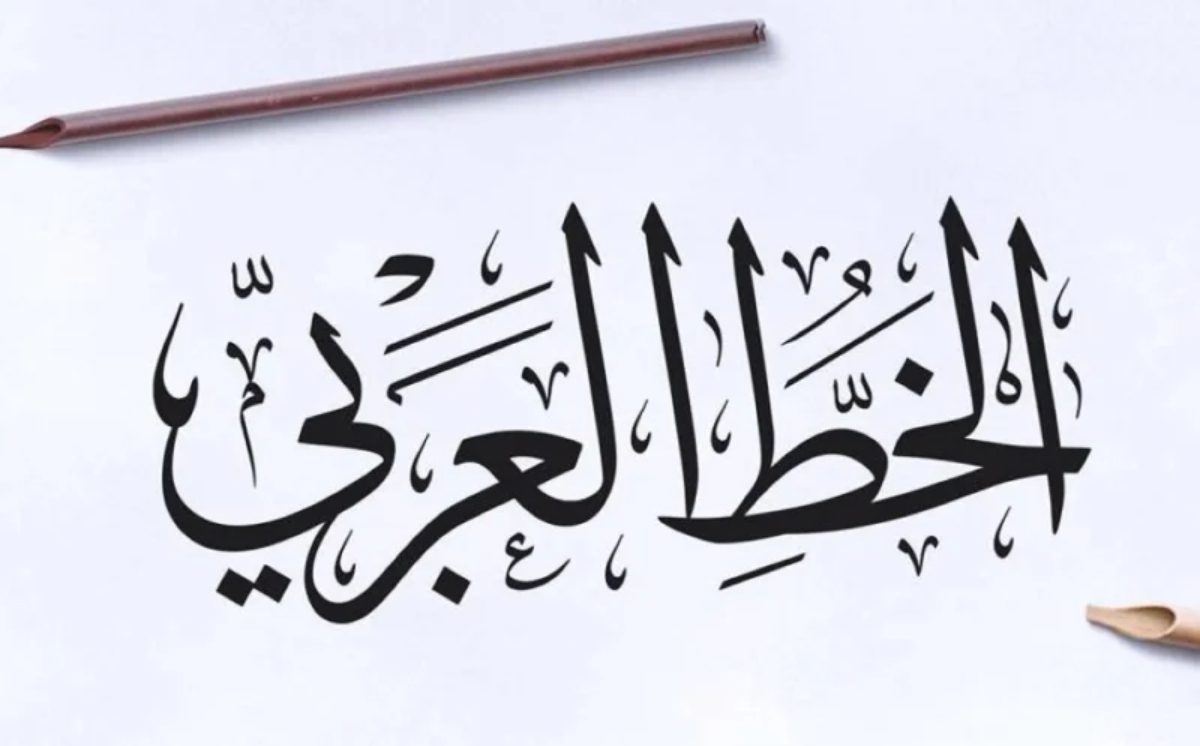 الخطِّ العَرَبْيّ